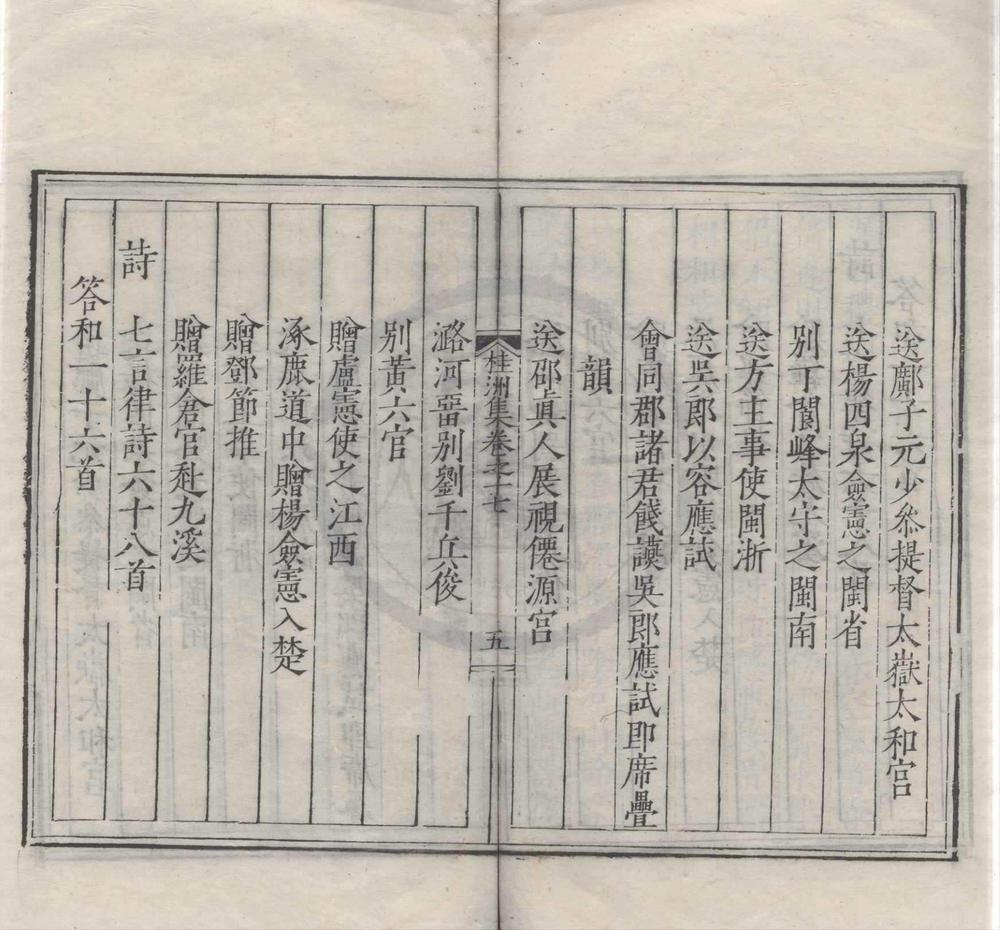 送鄺子元少叅提督太嶽太和宮
送楊四泉僉憲之閩省
别丁闤峰太守之閩南
送方主事使閩浙
送吳郎以容應試
會同郡諸君餞謨吳郎應試即席疊
韻
送邵真人展視僊源宮
桂洲集卷之十七
五
潞河畱别劉千兵俊
别黄六官
贈盧憲使之江西
涿鹿道中贈楊僉憲入楚
贈鄧節推
贈羅倉官赴九溪
詩　七言律詩六十八首
答和一十六首